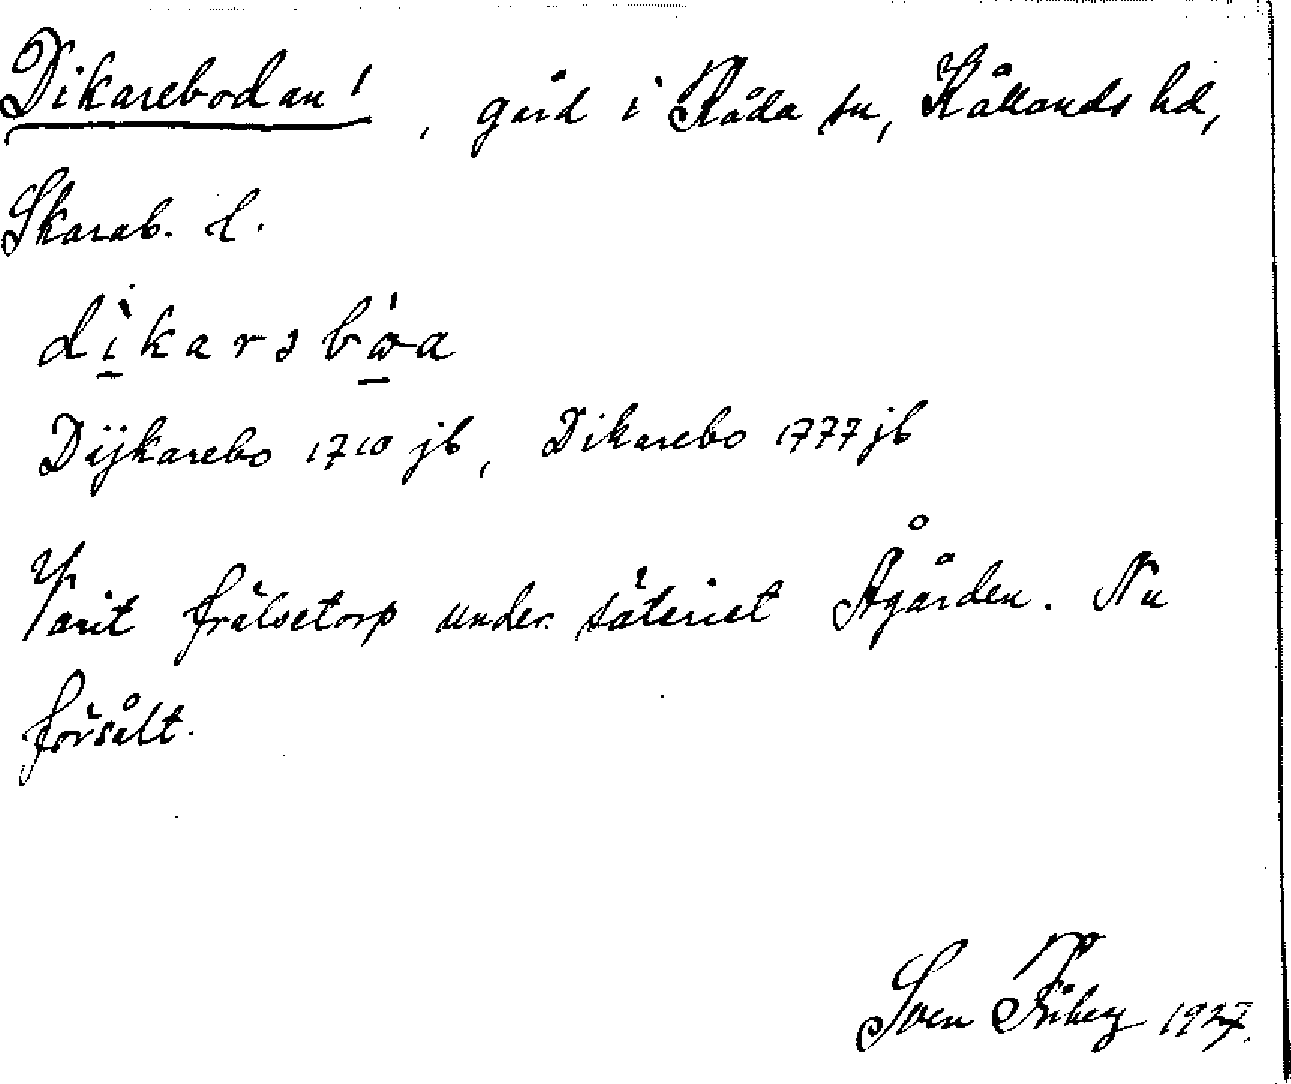 Dikarebodan!, gård i Råda sn, Kållands hd,
Skarab. l.
dìkarsbóa
Dijkarebo 1710 jb, Dikarebo 1777 jb
Varit frälsetorp under säteriet Ågården. Nu
försålt.
Sven Friberg 1927.